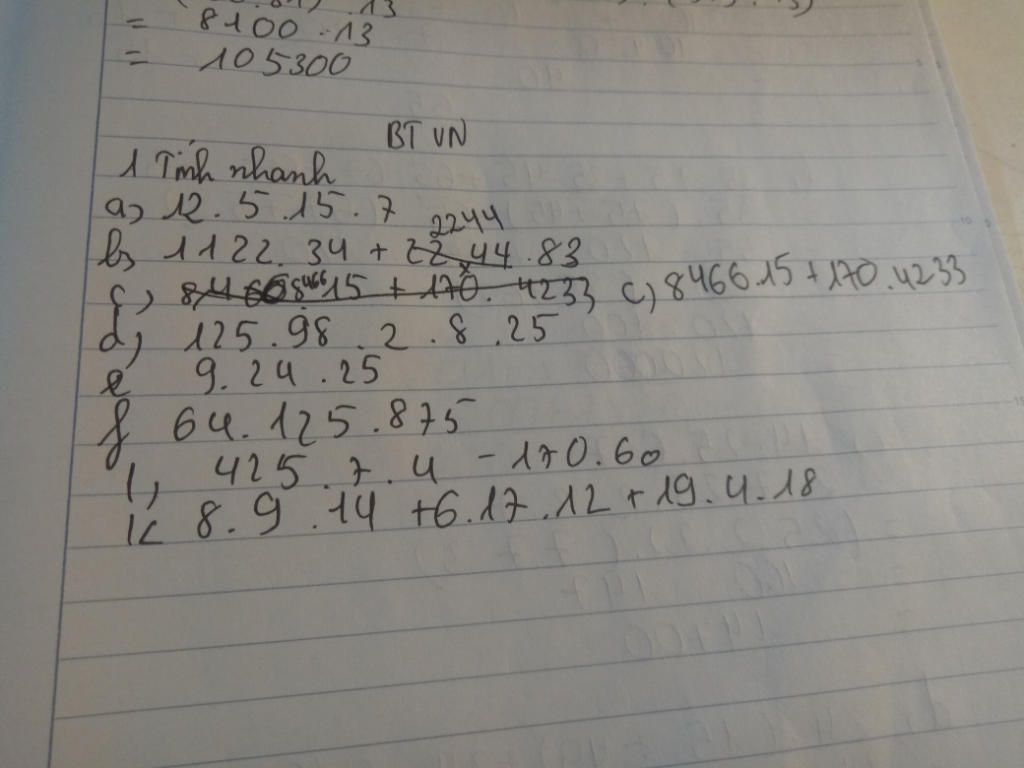 = 8100 . 13
= 105300
BTVN
1 Tính nhanh
a, 12 . 5 . 15 . 7
b, 1122 . 34 + 2244 . 83
c, 8466 . 15 + 170 . 4233 c, 8466 . 15 + 170 . 4233
d, 125 . 98 . 2 . 8 . 25
e 9 . 24 . 25
f 64 . 125 . 875
1, 425 . 7 . 4 - 170 . 60
k 8 . 9 . 14 + 6 . 17 . 12 + 19 . 4 . 18